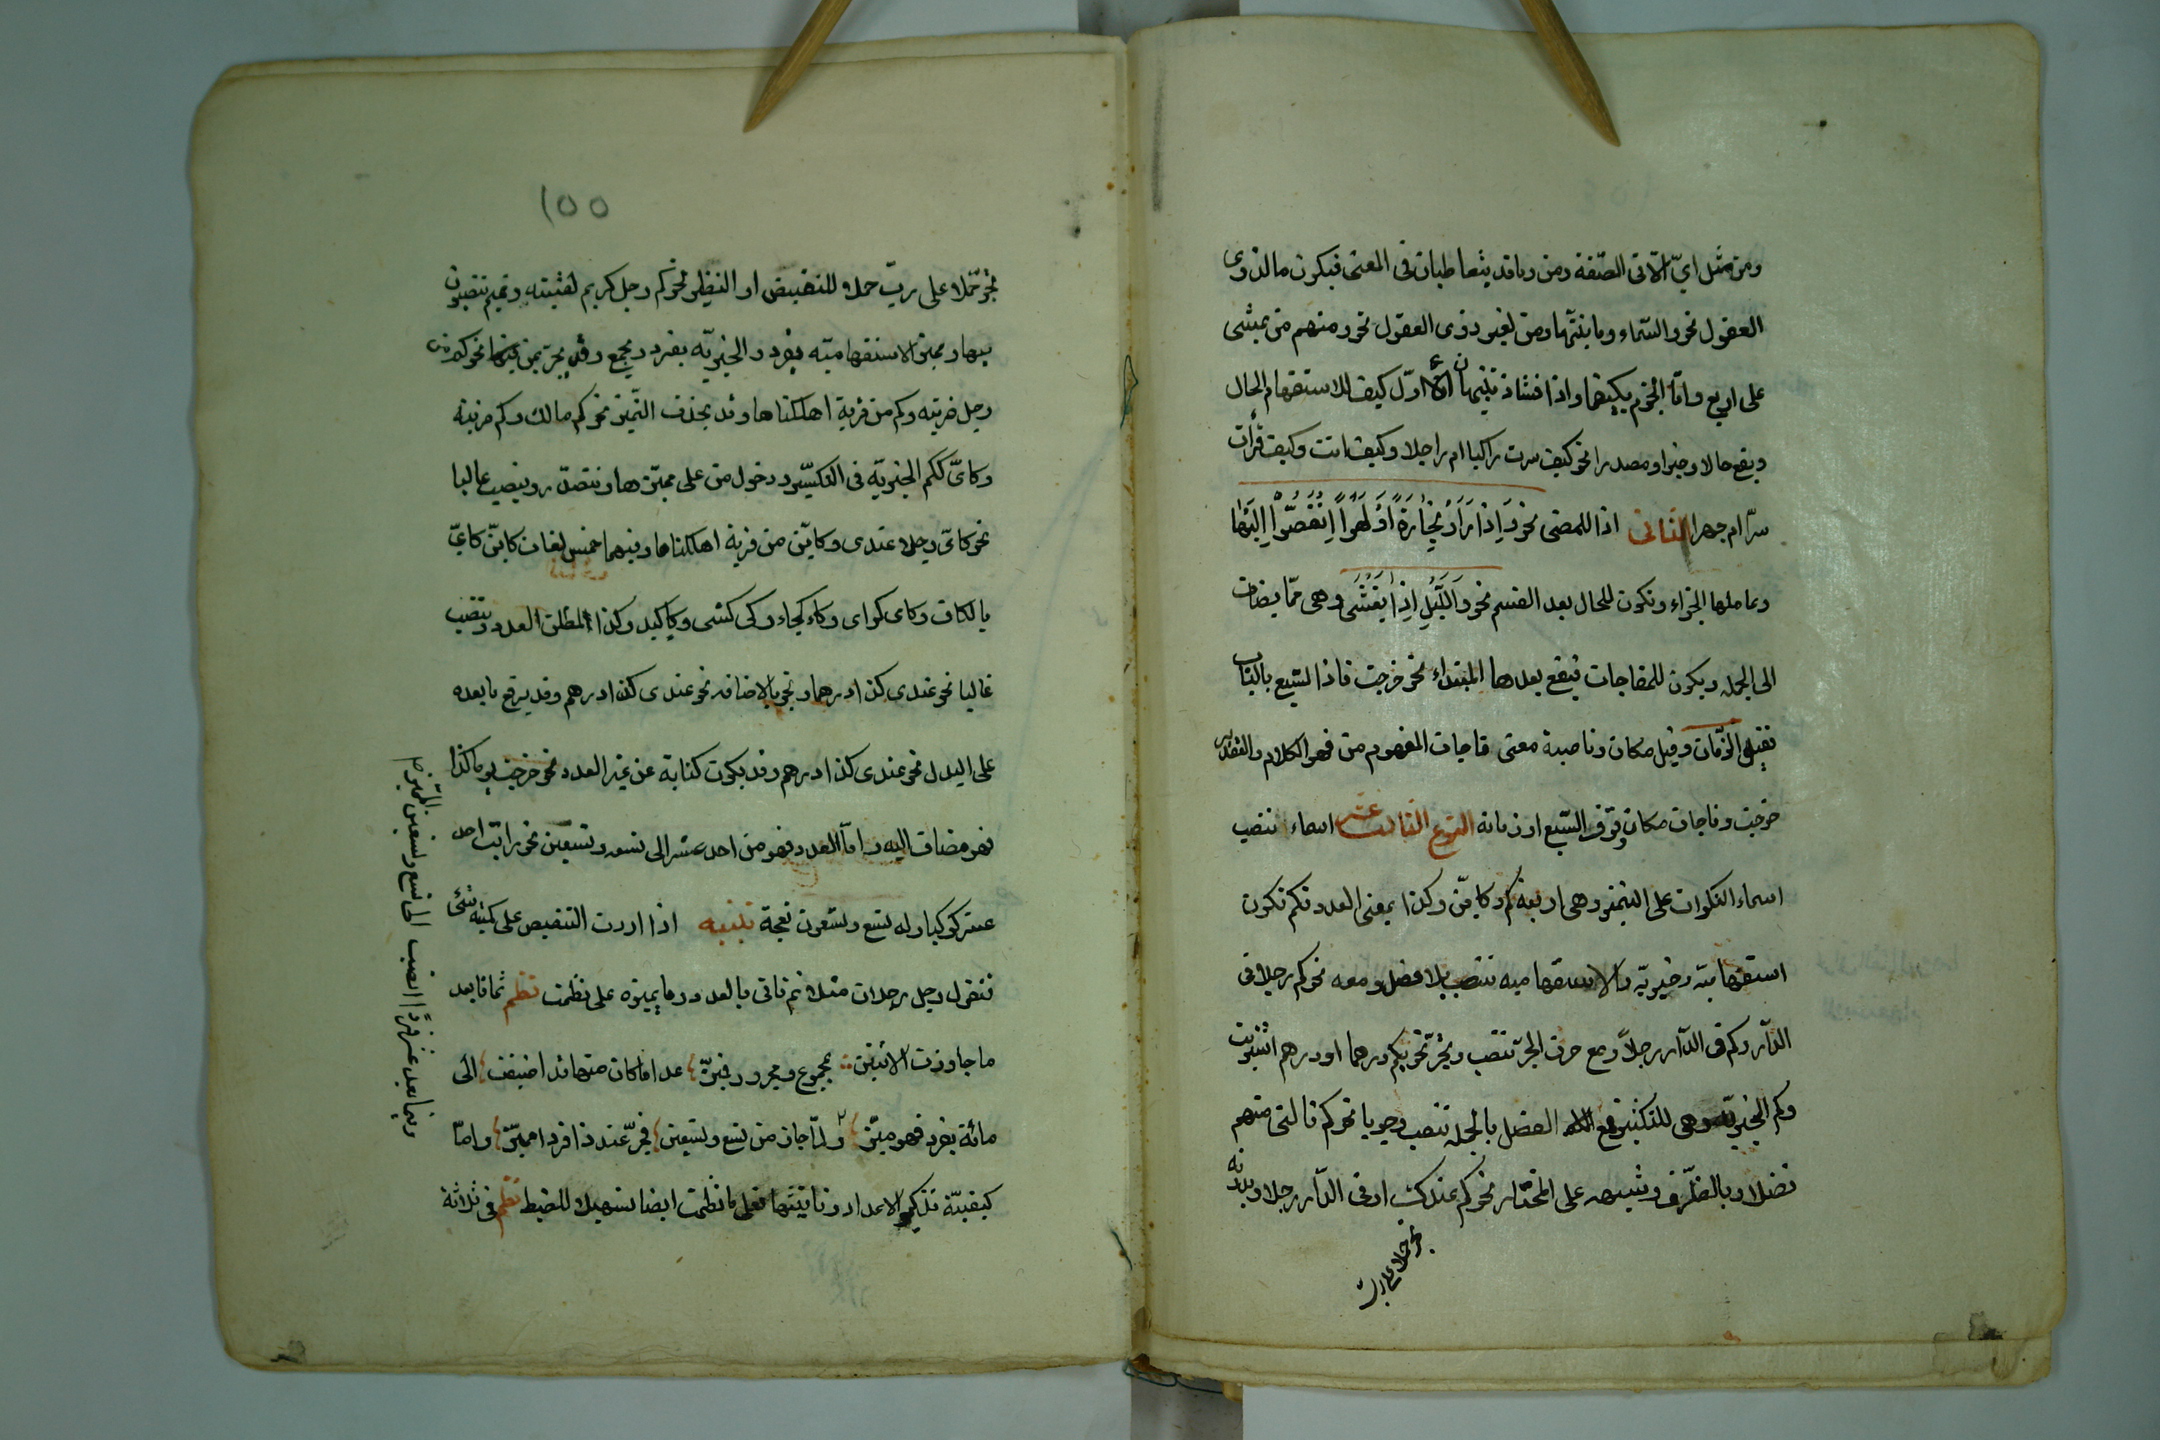 ومن مثل ايّ الّا فى الصّفة ومن وما قد يتعاطيان فى المعنى فيكون ما لذوى
العقول نحو والسّماء وما بنيٰها ومن لغير ذوى العقول نحو ومنهم من يمشى
على اربع وامّا الجزم بكيفما واذا فشاذ تبنيهان الاوّل كيف للاستفهام الحال
ويقع حالا وخبرا ومصدرا نحو كيف سرت راكبا ام راجلا وكيف انت وكيف قرأت
سرّا ام جهرا الثانى اذا للمضى نحو وَاِذا رَاَوْ تِجٰارَةً اَوْ لَهْواً اِنْفَضّوُا اِلَيْهٰا
وعاملها الجزاء وتكون للحال بعد القسم نحو وَاللَّيْلِ اِذٰا يَغْشٰى وهى ممّا يضاف
الى الجمله ويكون للمفاجات فيقع بعدها المبتداء نحو خرجت فاذا السّبع بالباب
فقيل الزّمان وقيل مكان وناصبة معنى فاجات المفهوم من فحو الكلام والتقدير
خرجت وفاجات مكان وقوف السّبع او زمانه النوع الثالث عشر اسماء تنصب
اسماء النكرات على التميز وهى اربعة كم وكايّن وكذا بمعنى العدد فكم تكون
استفهاميّة وخبريّه والاستفهاميه تنصب بلا فصل ومعه نحو كم رجلا فى
الدّار وكم فى الدّار رجلاً ومع حرف الجرّ تنصب ويجرّ نحو بكم درهما او درهم اشتريت
وكم الخبريّة وهى للتكثير فمع الفصل بالجمله تنصب وجوبا نحو كم نالنى منهم
فضلا وبالظّرف وشبهه على المختار نحو كم عندك او فى الدّار رجلا وبدونه
تجر حملا على ربّ
١٥٥
تجرّ حملا على ربّ حمله للنقيض او النظير نحو كم رجل كريم لقيته وتميم تنصبون
بها ومميز الاستفهاميّه يفرد والخبريّه يفرد ويجمع وقد يجرّ بمن فيهما نحو كم من
رجل ضربته وكم من قرية اهلكناها وقد يحذف التّميز نحو كم مالك وكم ضربته
وكايّ ككم الخبريّه فى التكثير ودخول من على مميّزها وتتصدّر وينصب غالبا
نحو كايّ رجلا عندى وكايّن من قرية اهلكناها وفيهما خمس لغات كايّن كايّ
بالكاف وكاى كواى وكاء كجاء وكى كشى وكيا كيد وكذا لمطلق العدد وينصب
غالبا نحو عندى كذا درهما ويجر بالاضافه نحو عندى كذا درهم وقد يرفع ما بعده
على البدل نحو عندى كذا درهم وقد يكون كناية عن غير العدد نحو خرجت يوما كذا
فهو مضاف اليه وامّا العدد فهو من احد عشر الى تسعه وتسعين نحو رايت احد
عشر كوكبا وله تسع وتسعون نعجة تنبيه اذا اردت التنصيص على كميّه شئ
فتقول رجل رجلان مثلا ثم تاتى بالعدد وما يميزه على نظمت نظم ثما بعد
ما جاوزت الاثنين بمجموع ومجرور فبيّن عدا ما كان منها قد اضيف الى
مائة يفرد فهو ميّز ولمّا جاز من تسع وتسعين فجرّ عند ذا فردا مميّز وامّا
كيفيّة تذكير الاعداد وتانيثها فعلى ما نظمت ايضا تسهيلا للضبط نظم فى ثلاثة
وفيما بعد عشر فردًا انصب الى تسع وتسعين المميّز